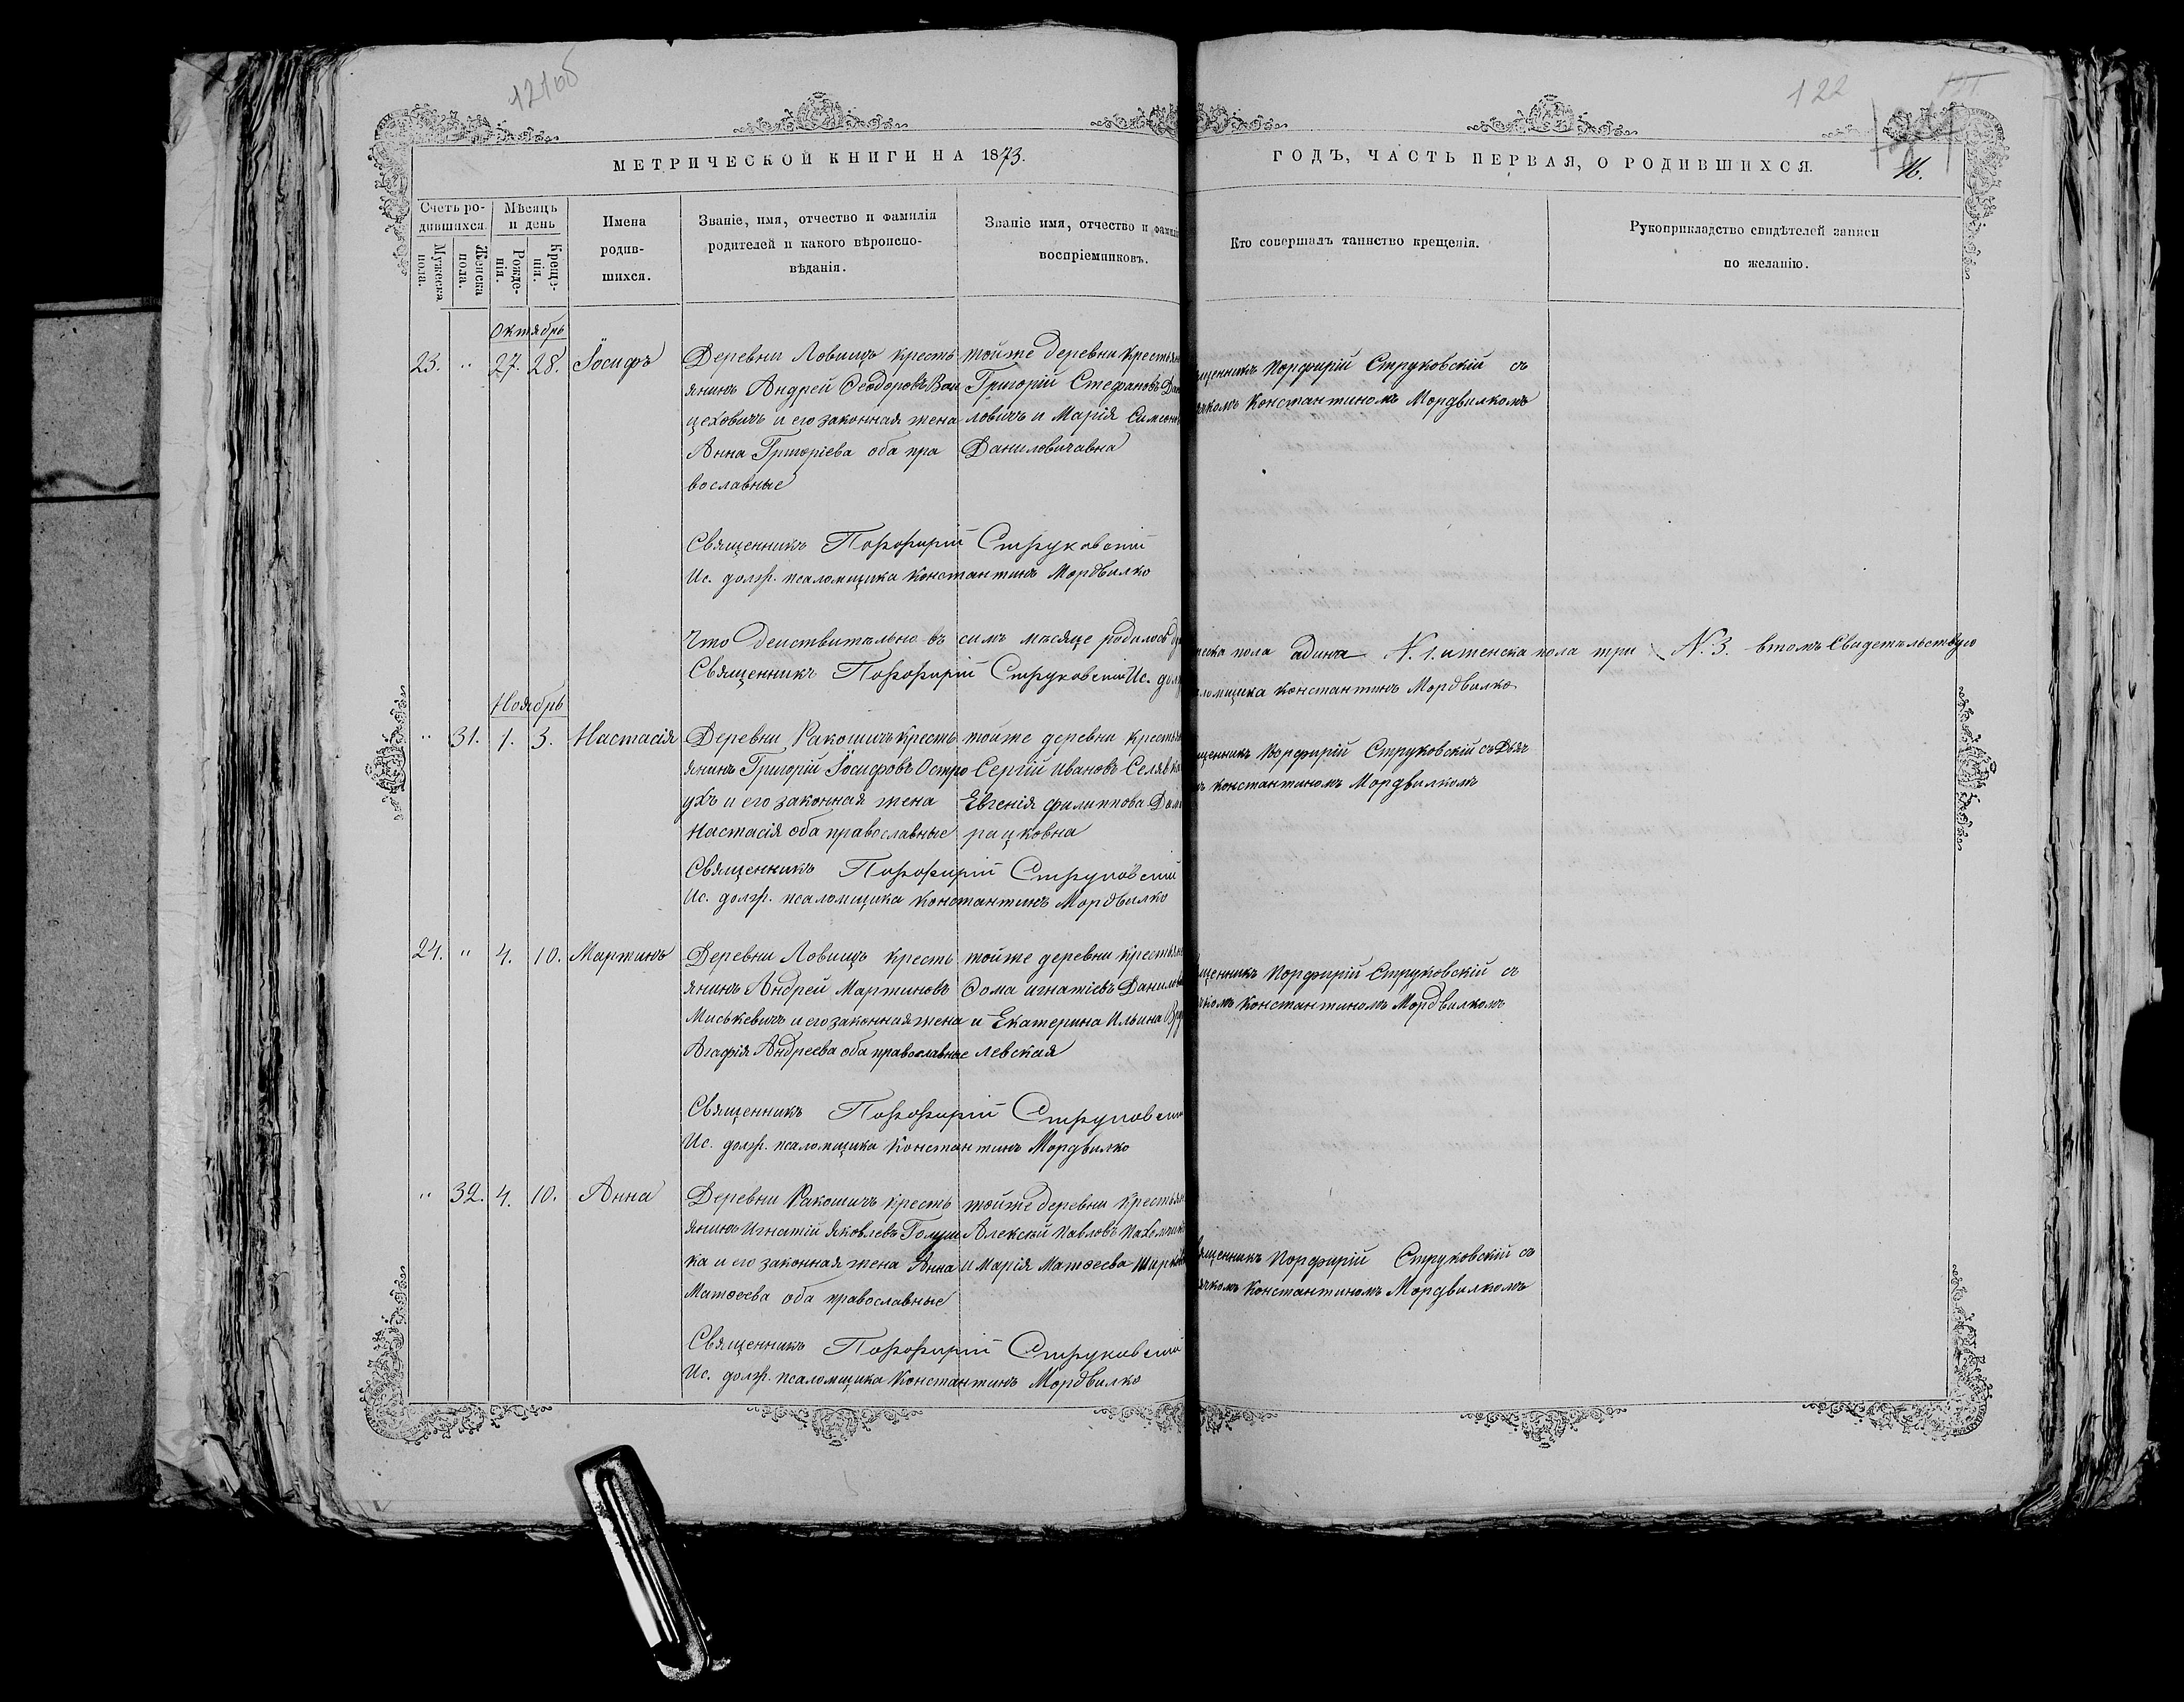 121об
122
МЕТРИЧЕСКОЙ КНИГИ НА 1873.
ГОДЪ, ЧАСТЬ ПЕРВАЯ, О РОДИВШИХСЯ.
16.
Счетъ ро-
дившихся.
Мужеска пола.
Женска пола.
Мѣсяцъ
и день
Рожде-
нія.
Креще-
нія.
Имена
родив-
шихся.
Званіе, имя, отчество и фамилія
родителей и какого вѣроиспо-
вѣданія.
Званіе имя, отчество и фамилі
воспріемниковъ.
Кто совершалъ таинство крещенія.
Рукоприкладство свидѣтелей записи
по желанію.
Октябрь
23. " 27. 28. Іосифъ
Деревни Ловищъ кресть
янинъ Андрей Ѳеодоровъ Вой
цеховичъ и его законная жена
Анна Григоріева оба пра
вославные
тойже деревни крестьян
Григорій Стефановъ Дан
ловичъ и Марія Симеон
Даниловичавна
щенникъ Порфирій Струковскій съ
ячкомъ Константиномъ Мордвилкомъ
Священникъ Порфирій Струковскій
Ис. долж. псаломщика Константинъ Мордвилко
Что действительно въ симъ мѣсяце родилось
жеска пола адинъ N. 1. иженска пола три N. 3. втомъ Свидетельствую
Священникъ Порфирій Струковскій Ис. дол
ломщика Константинъ Мордвилко
Ноябрь
" 31. 1. 3. Настасія
Деревни Ракошичъ кресть
янинъ Григорій Іосифовъ Остро
ухъ и его законная жена
Настасія оба православные
тойже деревни крестья
Сергій Ивановъ Селявка
Евгенія филиппова Дам
рацковна
щенникъ Порфирій Струковскій съ Дьяч
ъ Константиномъ Мордвилкомъ
Священникъ Порфирій Струковскій
Ис. долж. псаломщика Константинъ Мордвилко
24. " 4. 10. Мартинъ
Деревни Ловищъ кресть
янинъ Андрей Мартиновъ
Миськевичъ и его законная жена
Агафія Андреева оба православные
тойже деревни крестьян
Ѳома игнатіевъ Данилов
и Екатерина Ильина Вру
левская
щенникъ Порфирій Струковскій съ
чкомъ Константиномъ Мордвилкомъ
Священникъ Порфирій Струковскій
Ис. долж. псаломщика Константинъ Мордвилко
" 32. 4. 10. Анна
Деревни Ракошичъ кресть
янинъ Игнатій Яковлевъ Голуш
ка и его законная жена Анна
Матѳеева оба православные
тойже деревни крестьян
Алексѣй Павловъ Пахомчик
и Марія Матѳеева Ширк
вященникъ Порфирій Струковскій съ
ячкомъ Константиномъ Мордвилкомъ
Священникъ Порфирій Струковскій
Ис. долж. псаломщика Константинъ Мордвилко